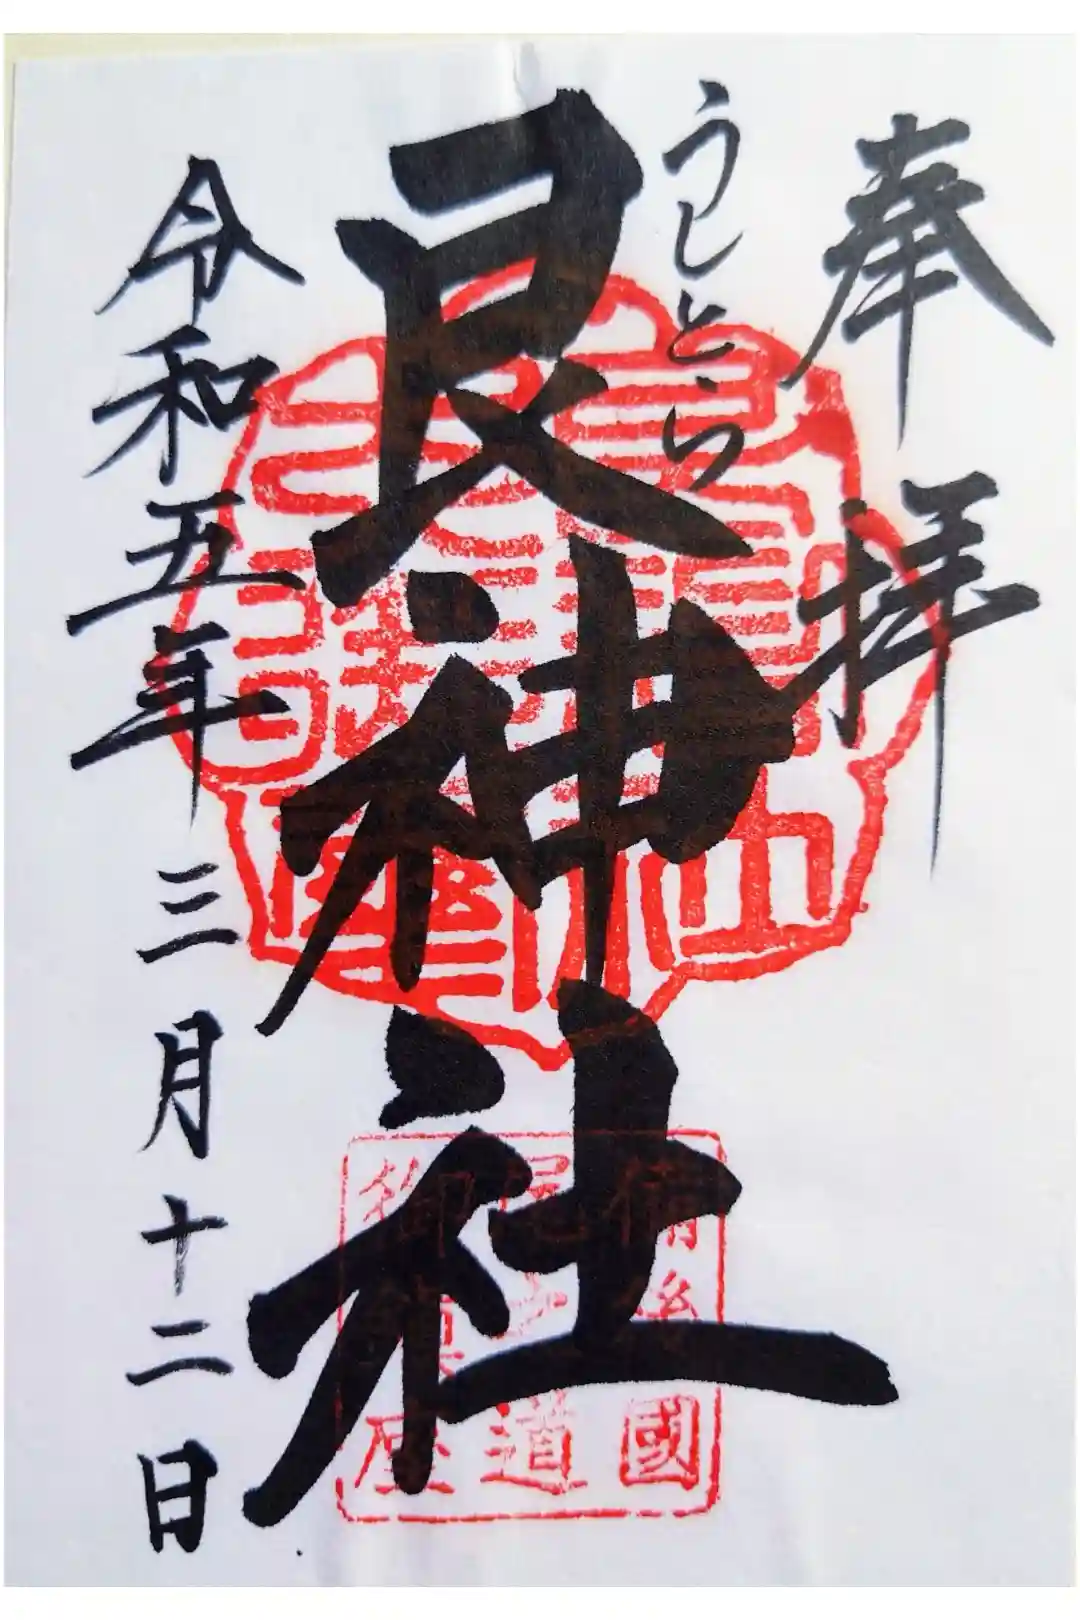 奉拝
うしとら
艮神社
令和五年三月十二日
備後國
尾道
御鎮座